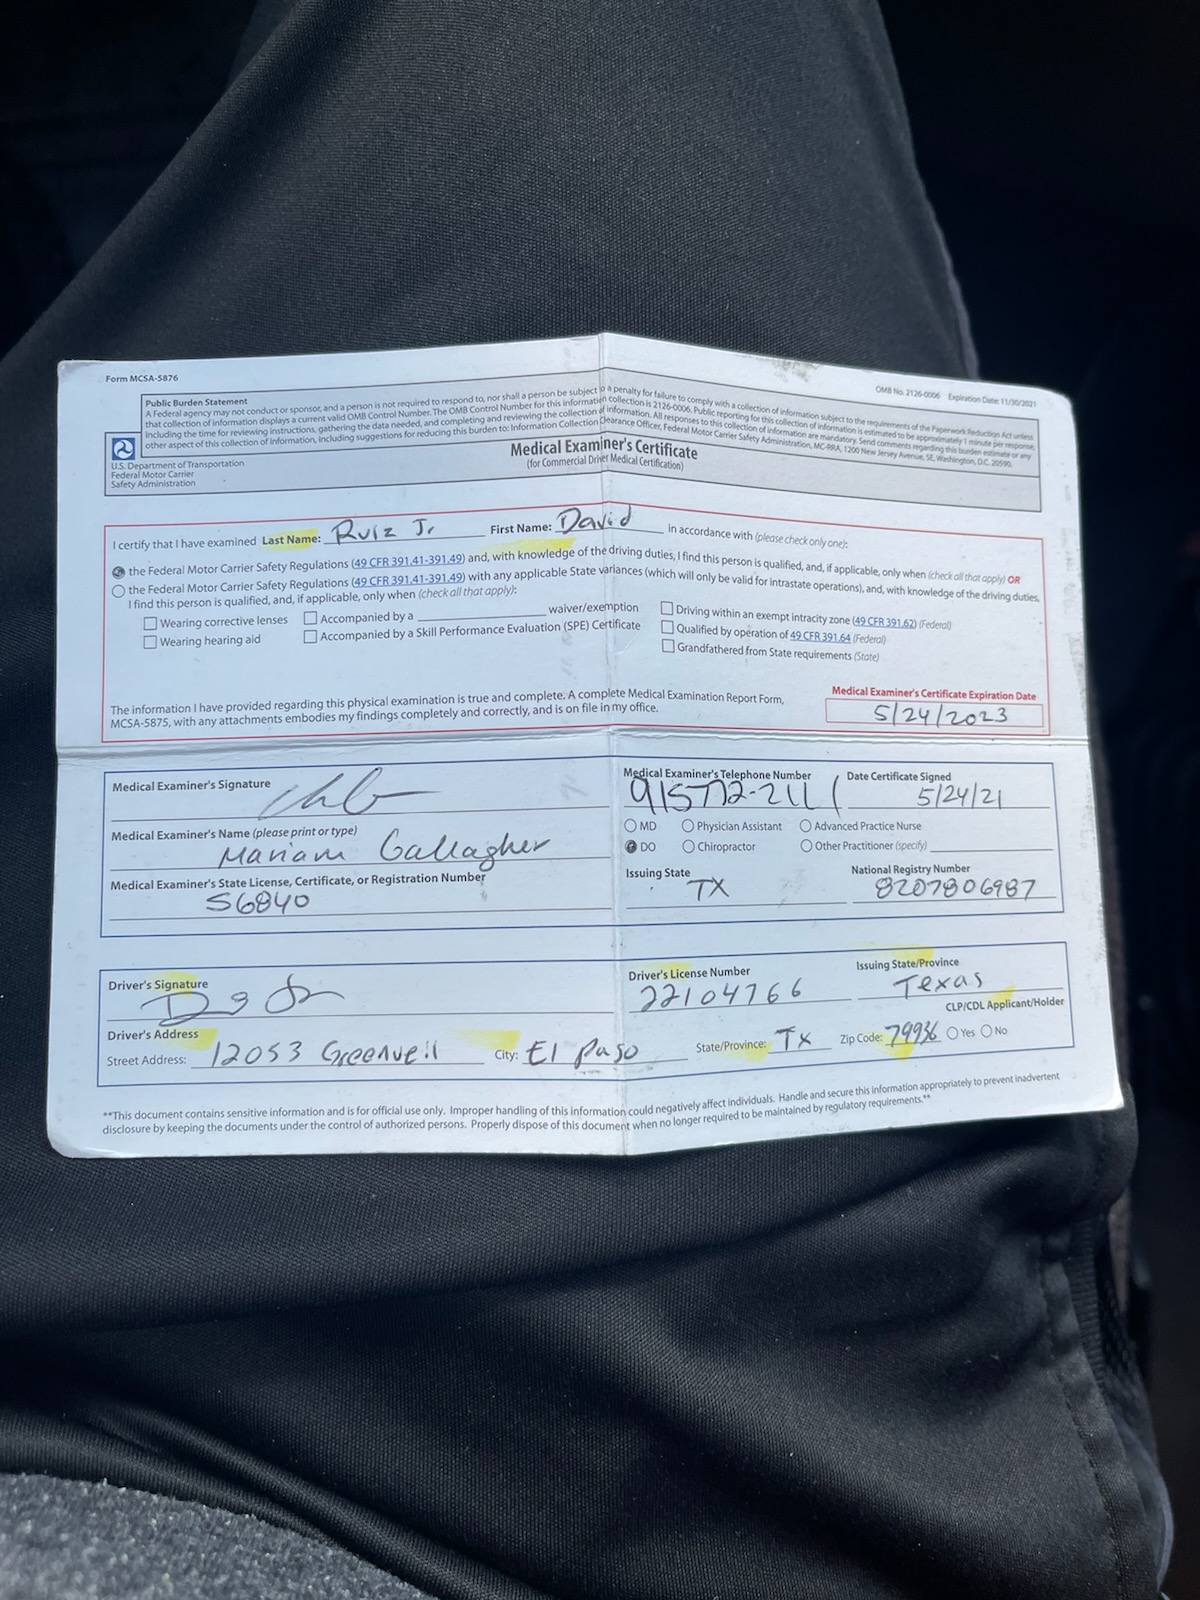 Form MCSA-5876
OMB No. 2126-0006 Expiration Date: 11/30/2021
Public Burden Statement
A Federal agency may not conduct or sponsor, and a person is not required to respond to, nor shall a person be subject to a penalty for failure to comply with a collection of information subject to the requirements of the Paperwork Reduction Act unless
that collection of information displays a current valid OMB Control Number. The OMB Control Number for this information collection is 2126-0006. Public reporting for this collection of information is estimated to be approximately 1 minute per response,
including the time for reviewing instructions, gathering the data needed, and completing and reviewing the collection of information. All responses to this collection of information are mandatory. Send comments regarding this burden estimate or any
other aspect of this collection of information, including suggestions for reducing this burden to: Information Collection Clearance Officer, Federal Motor Carrier Safety Administration, MC-RRA, 1200 New Jersey Avenue, SE, Washington, D.C. 20590.
U.S. Department of Transportation
Federal Motor Carrier
Safety Administration
Medical Examiner's Certificate
(for Commercial Driver Medical Certification)
I certify that I have examined Last Name: Ruiz Jr First Name: David in accordance with (please check only one):
the Federal Motor Carrier Safety Regulations (49 CFR 391.41-391.49) and, with knowledge of the driving duties, I find this person is qualified, and, if applicable, only when (check all that apply) OR
the Federal Motor Carrier Safety Regulations (49 CFR 391.41-391.49) with any applicable State variances (which will only be valid for intrastate operations), and, with knowledge of the driving duties,
I find this person is qualified, and, if applicable, only when (check all that apply):
Wearing corrective lenses Accompanied by a waiver/exemption Driving within an exempt intracity zone (49 CFR 391.62) (Federal)
Wearing hearing aid Accompanied by a Skill Performance Evaluation (SPE) Certificate Qualified by operation of 49 CFR 391.64 (Federal)
Grandfathered from State requirements (State)
The information I have provided regarding this physical examination is true and complete. A complete Medical Examination Report Form,
MCSA-5875, with any attachments embodies my findings completely and correctly, and is on file in my office.
Medical Examiner's Certificate Expiration Date
5/24/2023
Medical Examiner's Signature
Medical Examiner's Telephone Number Date Certificate Signed
5/24/21
Medical Examiner's Name (please print or type)
Mariam Gallagher
MD Physician Assistant Advanced Practice Nurse
DO Chiropractor Other Practitioner (specify)
Medical Examiner's State License, Certificate, or Registration Number
S6840
Issuing State National Registry Number
TX 8207806987
Driver's Signature
Driver's License Number Issuing State/Province
22104766 Texas
Driver's Address CLP/CDL Applicant/Holder
Street Address: 12053 Greenveil City: El Paso State/Province: TX Zip Code: 79936 Yes No
**This document contains sensitive information and is for official use only. Improper handling of this information could negatively affect individuals. Handle and secure this information appropriately to prevent inadvertent
disclosure by keeping the documents under the control of authorized persons. Properly dispose of this document when no longer required to be maintained by regulatory requirements.**